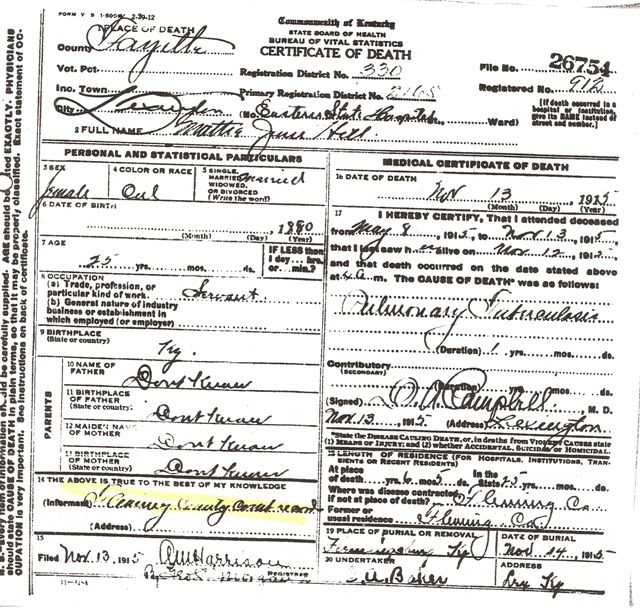 FORM V S 1-500M 2-29-12
Commonwealth of Kentucky
STATE BOARD OF HEALTH
BUREAU OF VITAL STATISTICS
CERTIFICATE OF DEATH
1 PLACE OF DEATH
County Fayette
Vot. Pct.
Registration District No. 330
File No. 26754
Inc. Town
Primary Registration District No. 2165
Registered No. 912
City Lexington (No. Eastern State Hospital, Ward)
[If death occurred in a hospital or institution, give its NAME instead of street and number.]
2 FULL NAME Mattie June Hill
PERSONAL AND STATISTICAL PARTICULARS
3 SEX
Female
4 COLOR OR RACE
Col
5 SINGLE, MARRIED, WIDOWED, OR DIVORCED (Write the word)
Married
6 DATE OF BIRTH
1880
(Month) (Day) (Year)
7 AGE
25 yrs. mos. ds.
IF LESS than 1 day hrs. or min.?
8 OCCUPATION
(a) Trade, profession, or particular kind of work. Servant
(b) General nature of industry business or establishment in which employed (or employer)
9 BIRTHPLACE
(State or country) Ky.
PARENTS
10 NAME OF FATHER Dont Know
11 BIRTHPLACE OF FATHER (State or country) Dont Know
12 MAIDEN NAME OF MOTHER Dont Know
13 BIRTHPLACE OF MOTHER (State or country) Dont Know
14 THE ABOVE IS TRUE TO THE BEST OF MY KNOWLEDGE
(Informant) County Court record
(Address)
15
Filed Nov. 13, 1915 AM Harrison
REGISTRAR
11-3184
MEDICAL CERTIFICATE OF DEATH
16 DATE OF DEATH
Nov 13 1915
(Month) (Day) (Year)
17 I HEREBY CERTIFY, That I attended deceased
from May 8, 1915, to Nov 13, 1915
that I last saw h alive on Nov. 12, 1915
and that death occurred on the date stated above
at m. The CAUSE OF DEATH* was as follows:
Pulmonary Tuberculosis
(Duration) 1 yrs. mos. ds.
Contributory
(SECONDARY)
(Duration) yrs. mos. ds.
(Signed) Campbell M. D.
Nov. 13, 1915 (Address) Lexington
*State the DISEASE CAUSING DEATH, or, in deaths from VIOLENT CAUSES state (1) MEANS OF INJURY; and (2) whether ACCIDENTAL, SUICIDAL or HOMICIDAL.
18 LENGTH OF RESIDENCE (FOR HOSPITALS, INSTITUTIONS, TRANSIENTS OR RECENT RESIDENTS)
At place of death yrs. 6 mos. 5 ds. In the State 25 yrs. mos. ds.
Where was disease contracted if not at place of death? Fleming Co.
Former or usual residence Fleming Co.
19 PLACE OF BURIAL OR REMOVAL
Ky
DATE OF BURIAL
Nov. 14, 1915
20 UNDERTAKER
Baker
ADDRESS
Lex Ky